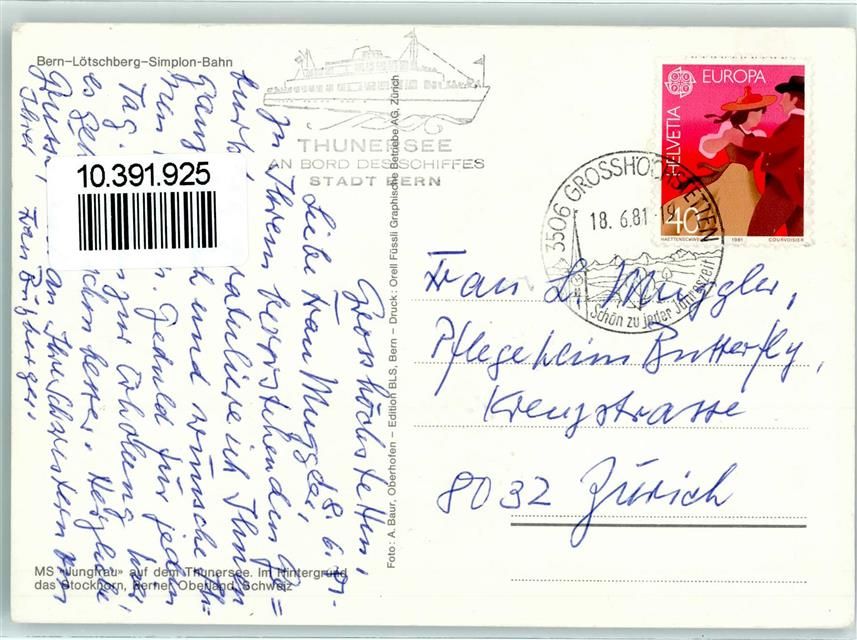 Bern–Lötschberg–Simplon-Bahn
THUNERSEE
AN BORD DES SCHIFFES
STADT BERN
HELVETIA
EUROPA
40
HAETTENSCHWE 1981 COURVOISIER
3506 GROSSHÖCHSTETTEN
18.6.81-19
Schön zu jeder Jahreszeit
10.391.925
Grosshöchstetten,
18.6.81.
Liebe Frau Muggler,
Zu Ihrem bevorstehenden Ge=
burts gratuliere ich Ihnen
ganz und wünsche Ih-
nen Geduld für jeden
Tag. zur Erholung
es schon besser. Herzliche
Grüsse, an Ihre Schwestern von
Ihrer Frau
Foto: A. Baur, Oberhofen – Edition BLS, Bern – Druck: Orell Füssli Graphische Betriebe AG, Zürich
Frau L. Muggler,
Pflegeheim Butterfly,
Kreuzstrasse
8032 Zürich
MS «Jungfrau» auf dem Thunersee. Im Hintergrund
das Stockhorn, Berner Oberland, Schweiz